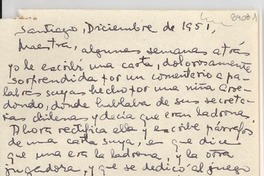 Santiago, Diciembre de 1951,
Maestra, algunas semanas atras
yo le escribí una carta, dolorosamente
sorprendida por un comentario a pa-
labras suyas hecho por una niña Arre-
dondo, donde hablaba de sus secreta-
rias chilenas y decía que eran ladronas.
Ahora rectifica ella y escribe párrafos
de una carta suya, en que dice
que una era la ladrona, y la otra
jugadora, y que se dedicó al juego